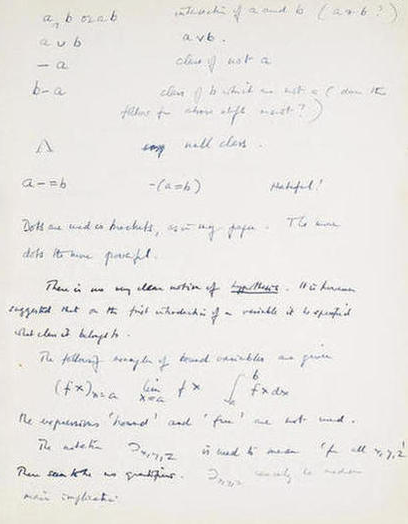 a, b or ab intersection of a and b (a ∧ b ?)
a ∪ b a ∨ b.
− a class of not a
b − a class of b which are not a ( does the
follow for above shift ?)
Λ null class.
a − = b −(a = b) Hateful!
Dots are used as brackets, as in my paper. The more
dots the more powerful.
There is no very clear notion of hypothesis. It is however
suggested that on the first introduction of a variable it be specified
what class it belongs to.
The following examples of bound variables are given
(fx)x=a lim x=a fx ∫ a b fx dx
The expressions 'bound' and 'free' are not used.
The notation ⊃x,y,z is used to mean 'for all x,y,z'
There seem to be no quantifiers. ⊃x,y,z to
main implication